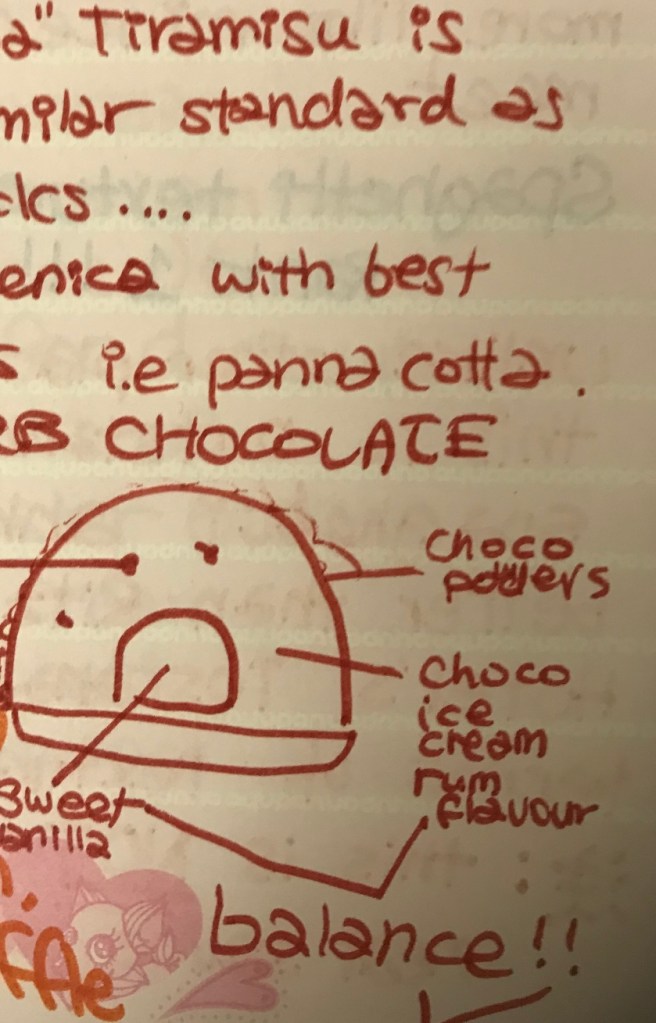 a" Tiramisu is
milar standard as
cks ....
enica with best
s i.e panna cotta.
RB CHOCOLATE
choco
pdders
choco
ice
cream
rum
flavour
Sweet
anilla
balance!!